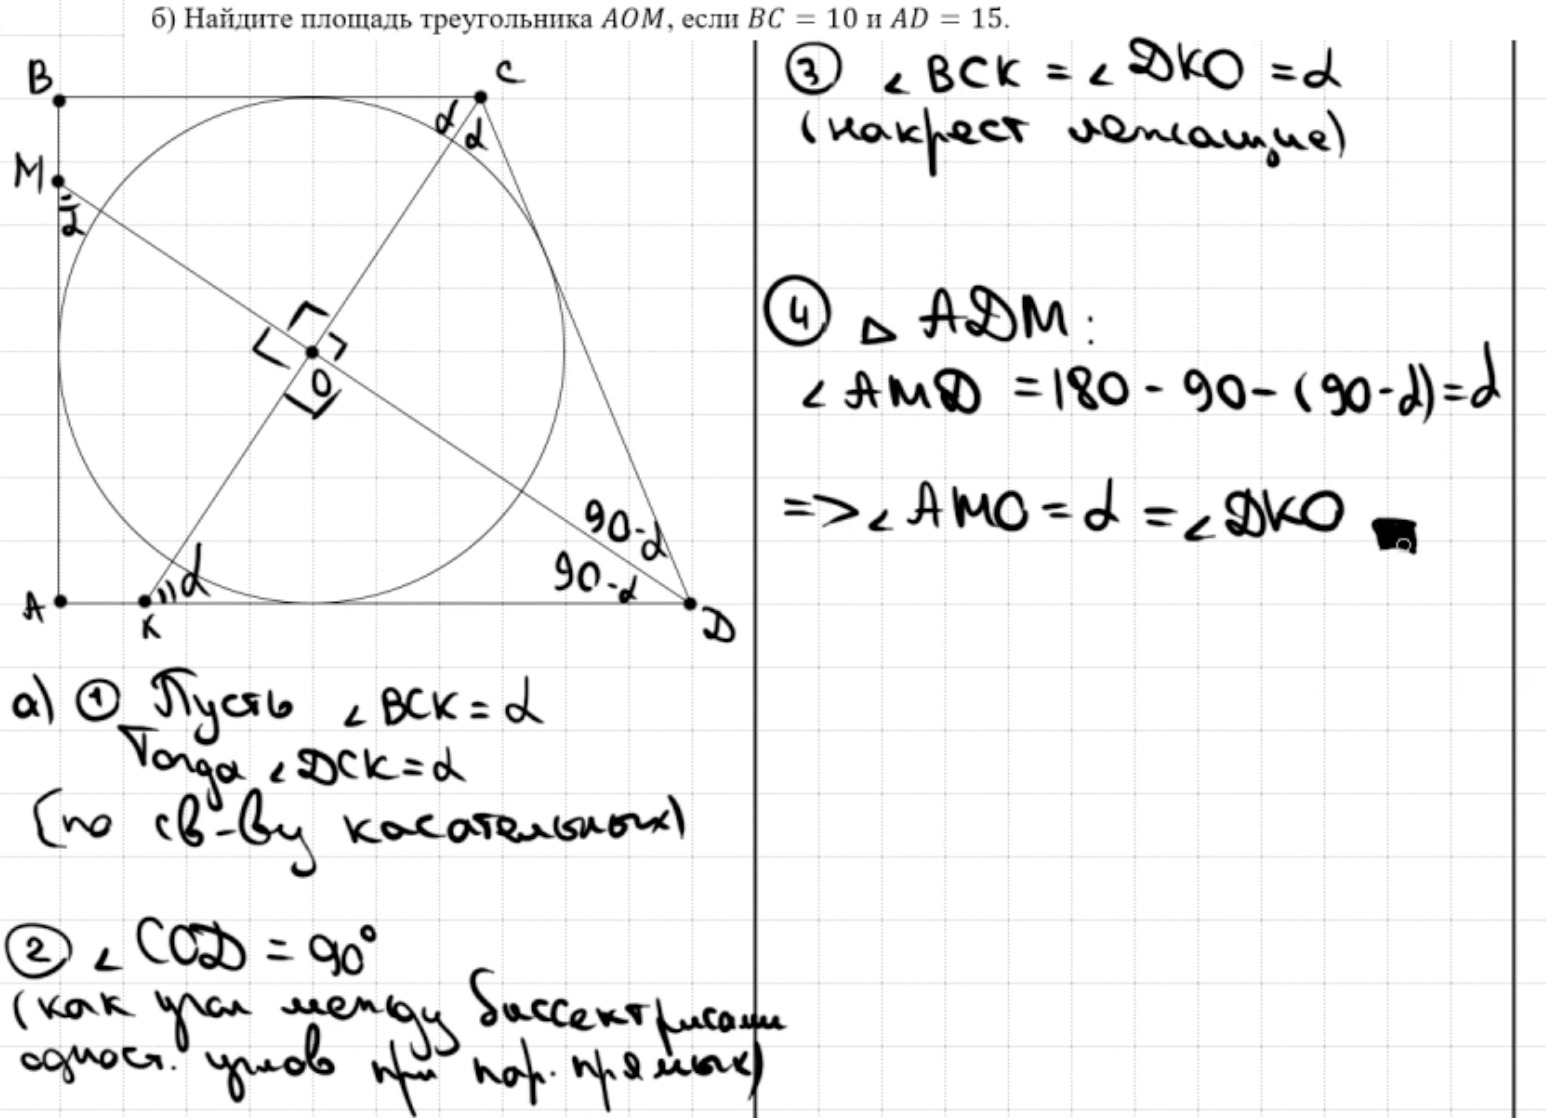 б) Найдите площадь треугольника AOM, если BC = 10 и AD = 15.
B
C
α
α
M
α
O
90-α
90-α
α
A
K
D
а) ① Пусть ∠BCK = α
Тогда ∠DCK = α
(по св-ву касательных)
② ∠COD = 90°
(как угол между биссектрисами
одност. углов при пар. прямых)
③ ∠BCK = ∠DKO = α
(накрест лежащие)
④ △ ADM:
∠AMD = 180 - 90 - (90-α) = α
=> ∠AMO = α = ∠DKO